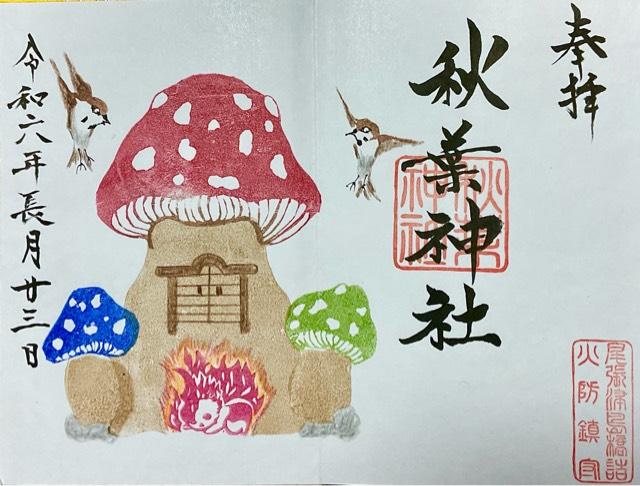 奉拝
秋葉神社
秋葉神社
尾張津島橋詰
火防鎮守
令和六年長月廿三日